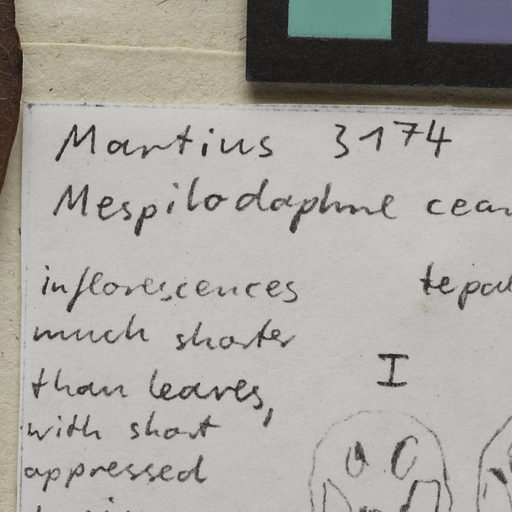 Martius 3174
Mespilodaphne
inflorescences
much shorter
than leaves,
with short
appressed
tepal
I